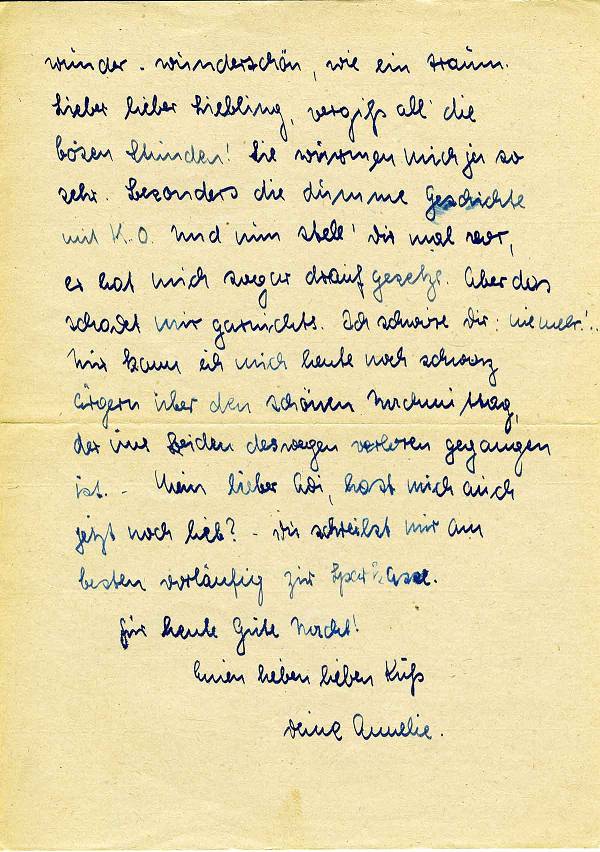 wunder - wunderschön, wie ein Traum.
Lieber lieber Liebling, vergiß all' die
bösen Stunden! Sie wurmen mich ja so
sehr. Besonders die dumme Geschichte
mit K.O. Und nun stell' Dir mal vor,
er hat mich sogar drauf gesetzt. Aber das
schadet mir garnichts. Ich schwöre Dir: nie mehr!..
Nur kann ich mich heute noch schwarz
ärgern über den schönen Nachmittag,
der uns Beiden deswegen verloren gegangen
ist. - Mein lieber Adi, hast mich auch
jetzt noch lieb? - Du schreibst mir am
besten vorläufig zur Sparkasse.
Für heute Gute Nacht!
Einen lieben lieben Kuß
Deine Annelie.